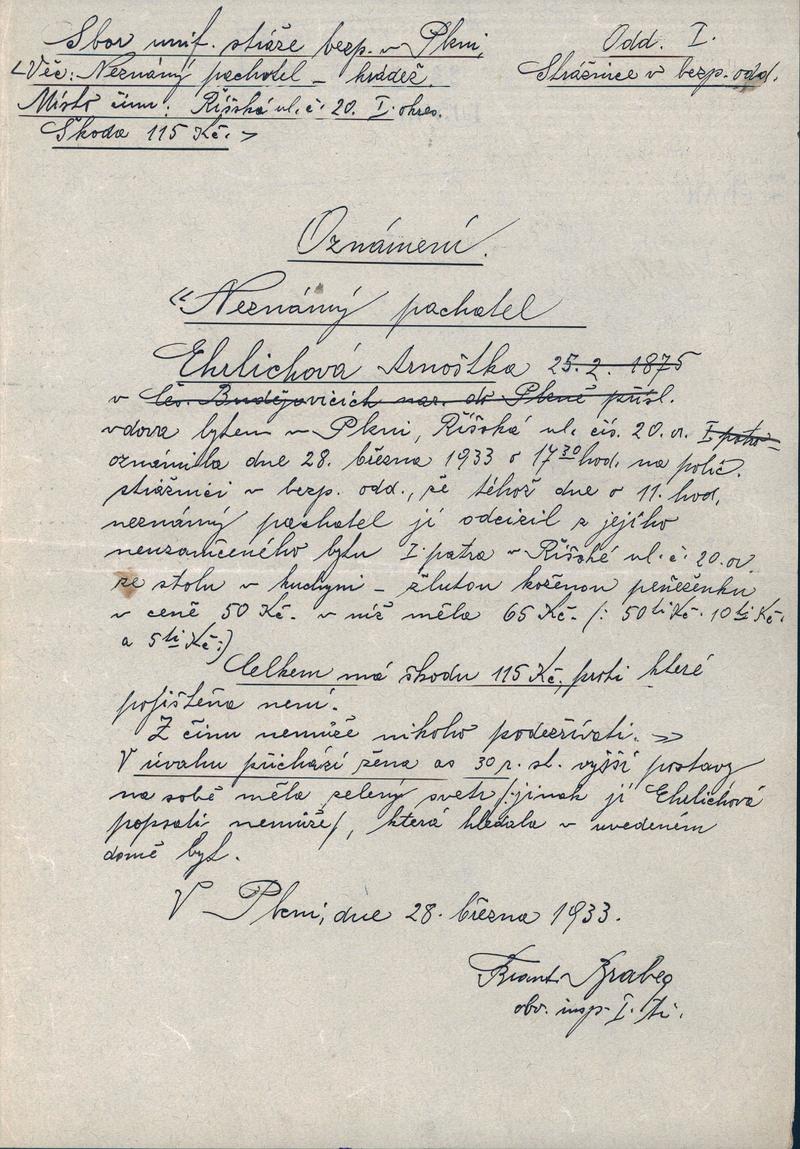 Sbor unif. stráže bezp. v Plzni,
Odd. I.
Věc: Neznámý pachatel – krádež.
Strážnice v bezp. odd.
Místo činu: Říšská ul. č. 20. I. okres.
Škoda 115 Kč.
Oznámení.
"Neznámý pachatel
Ehrlichová Arnoštka 25. 2. 1875
v Čes. Budějovicích nar. do Plzně přísl.
vdova bytem v Plzni, Říšská ul. čís. 20. I. patro
oznámila dne 28. března 1933 o 17 30 hod. na polic.
strážnici v bezp. odd., že téhož dne o 11. hod.
neznámý pachatel jí odcizil z jejího
neuzamčeného bytu I. patra v Říšské ul. č. 20.
ze stolu v kuchyni – žlutou koženou peněženku
v ceně 50 Kč. v níž měla 65 Kč. (: 50ti Kč. 10ti Kč.
a 5ti Kč:)
Celkem má škodu 115 Kč, proti které
pojištěna není.
Z činu nemůže nikoho podezřívati. »
V úvahu přichází žena as 30 r. st. vyšší postavy
na sobě měla zelený svetr /:jinak jí Ehrlichová
popsati nemůže/, která hledala v uvedeném
domě byt.
V Plzni, dne 28. března 1933.
Frant. Brabec
obv. insp. I. tř.